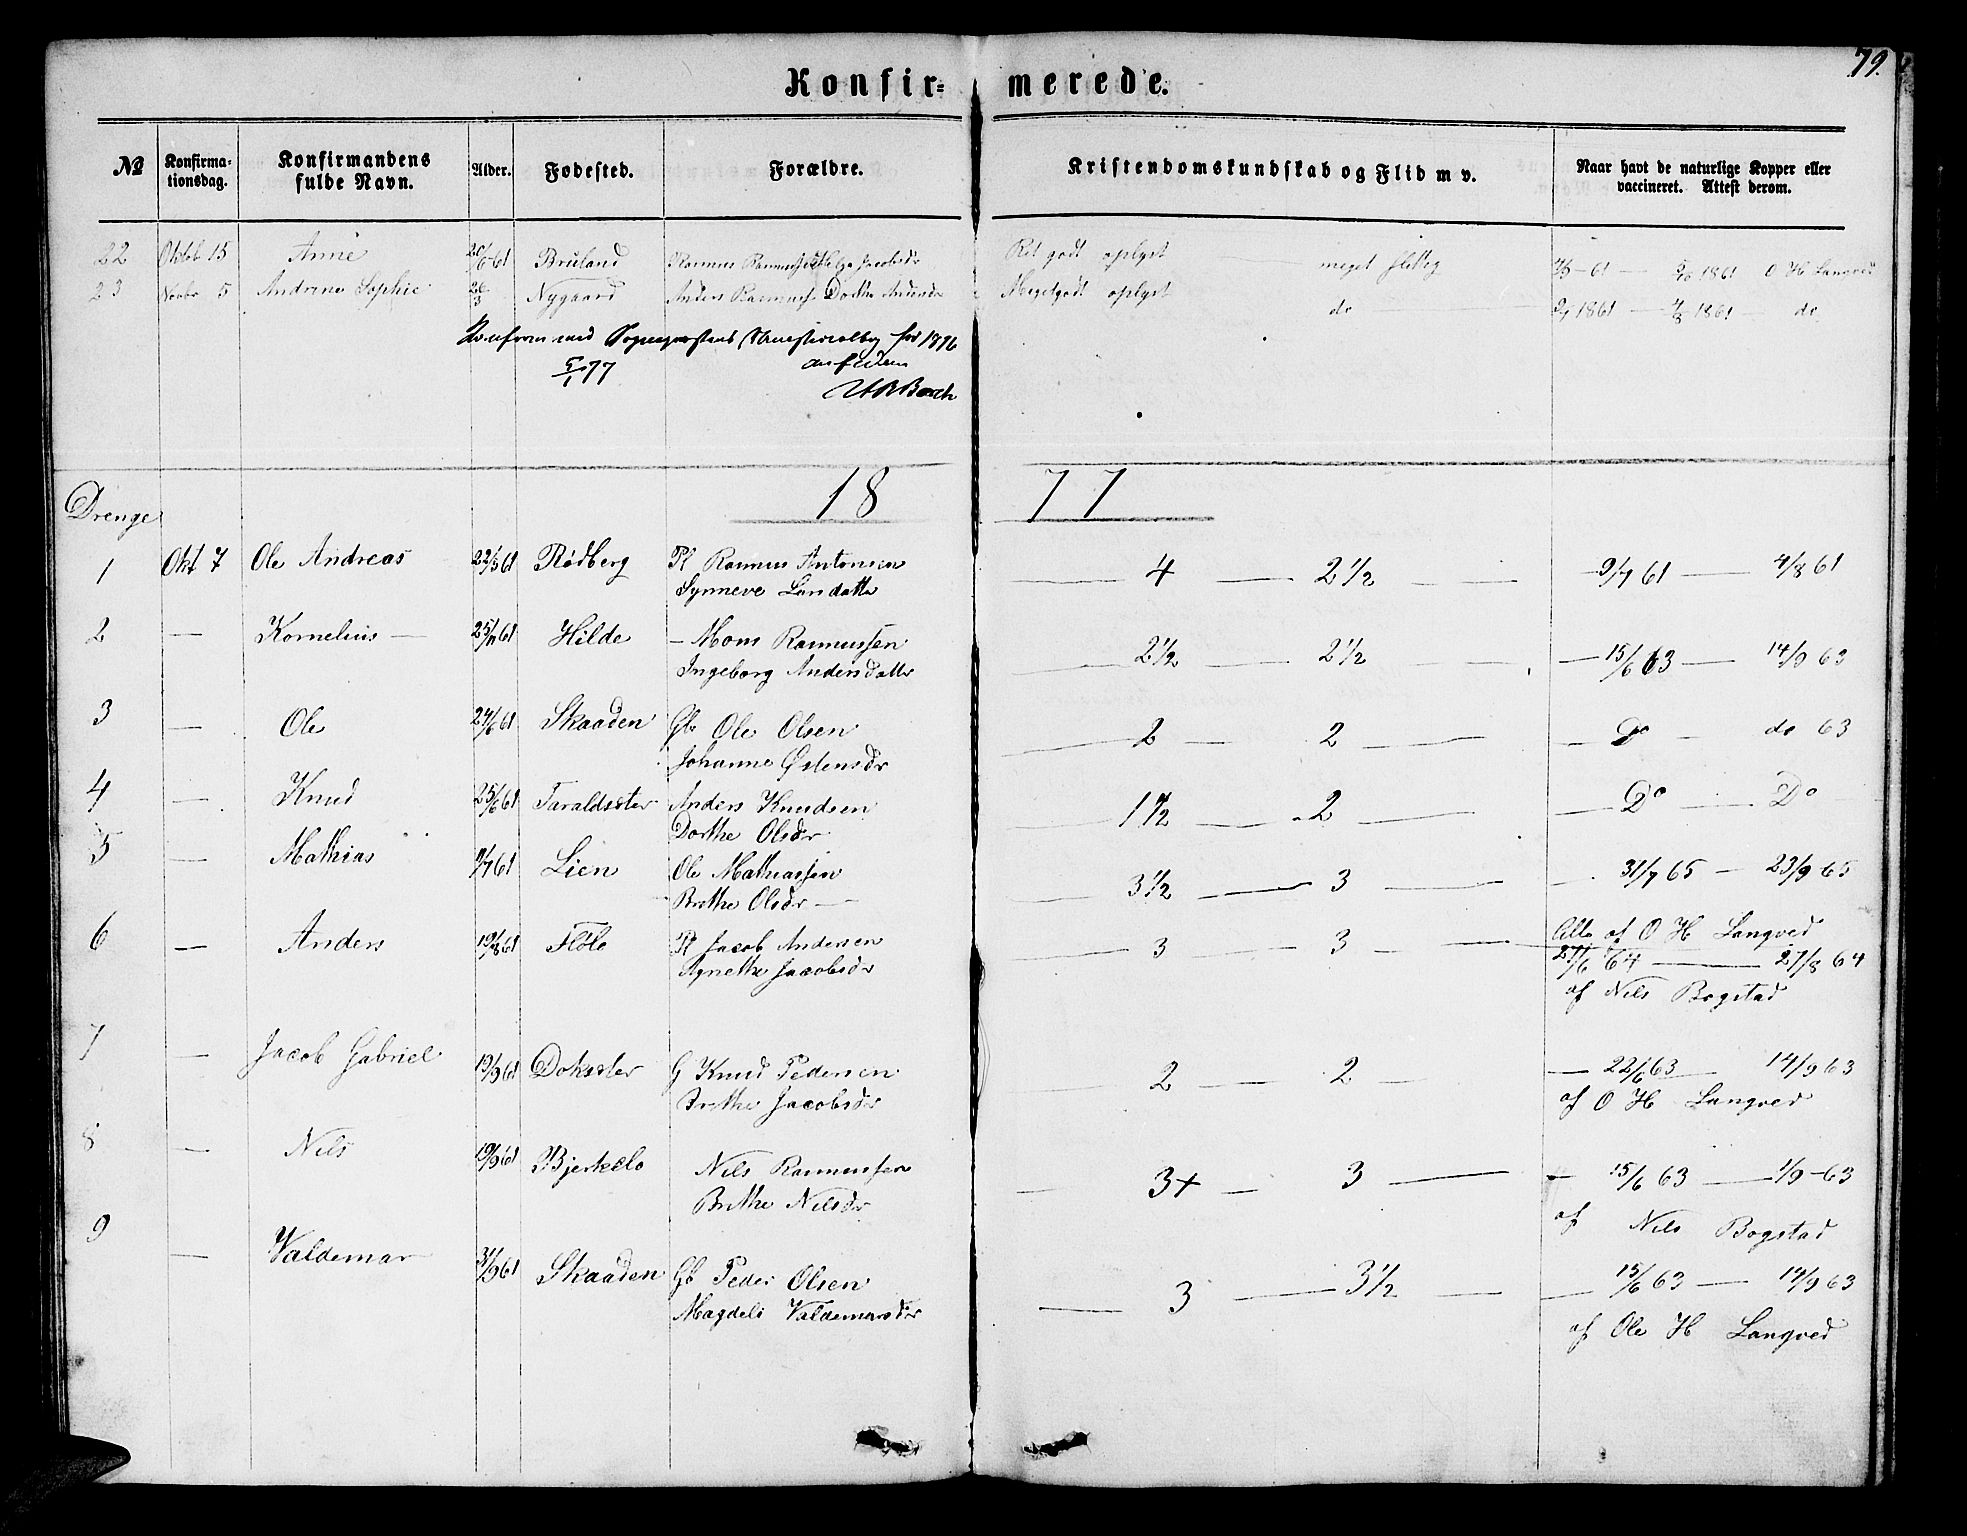 79.
Konfir= merede.
No Konfirma- tionsdag. Konfirmandens fulde Navn. Alder. Fødested. Forældre. Kristendomskundskab og Flid m v. Naar havt de naturlige Kopper eller vaccineret. Attest derom.
22 Oktob 15 Anne 20/6-61 Bruland Rasmus Rasmussen Helga Jacobsdr Ret godt oplyst meget flittig 1861 O H Langved
23 Novbr 5 Andrine Sophie 26/3 Nygaard Anders Rasmuss Dorthe Andersdr Megetgodt oplyst do 1861 1861 do
Konform med Sognepræstens Ministerialbog for 1876
5/1 77
18 77
Drenge
1 Okt 7 Ole Andreas 22/5 61 Rødberg Pl Rasmus Antonsen 4 2 1/2 9/7 61 4/8 61
Synneve Larsdatter
2 — Kornelius — 25/11 61 Hilde — Mons Rasmussen 2 1/2 2 1/2 15/6 63 14/9 63
Ingeborg Andersdatter
3 — Ole 24/6 61 Skaaden Gb Ole Olsen 2 2 Do do 63
Johanne Østensdr
4 — Knud 25/6 61 Taraldsæter Anders Knudsen 1 1/2 2 Do Do
Dorthe Olsdr
5 — Mathias 61 Lien Ole Mathiassen 3 1/2 3 31/7 65 — 23/9 65
Brithe Olsdr —
Alle af O H Langved
6 — Anders 19/8 61 Fløle Pl Jacob Andersen 3 3 27/6 64 — 27/8 64
Agnethe Jacobsdr
af Nils Bogstad
7 — Jacob Gabriel 19/9 61 Doksæter G Knud Pedersen 2 2 — 22/6 63 14/9 63
Brithe Jacobsdr
af O H Langved
8 — Nils 19/9 61 Bjerkelo Nils Rasmussen 3+ 3 15/6 63 — 1/9-63
Brithe Nilsdr
af Nils Bogstad
9 — Valdemar 61 Skaaden Gb Peder Olsen 3 3 1/2 15/6 63 — 14/9 63
Magdeli Valdemarsdr
af Ole H Langved